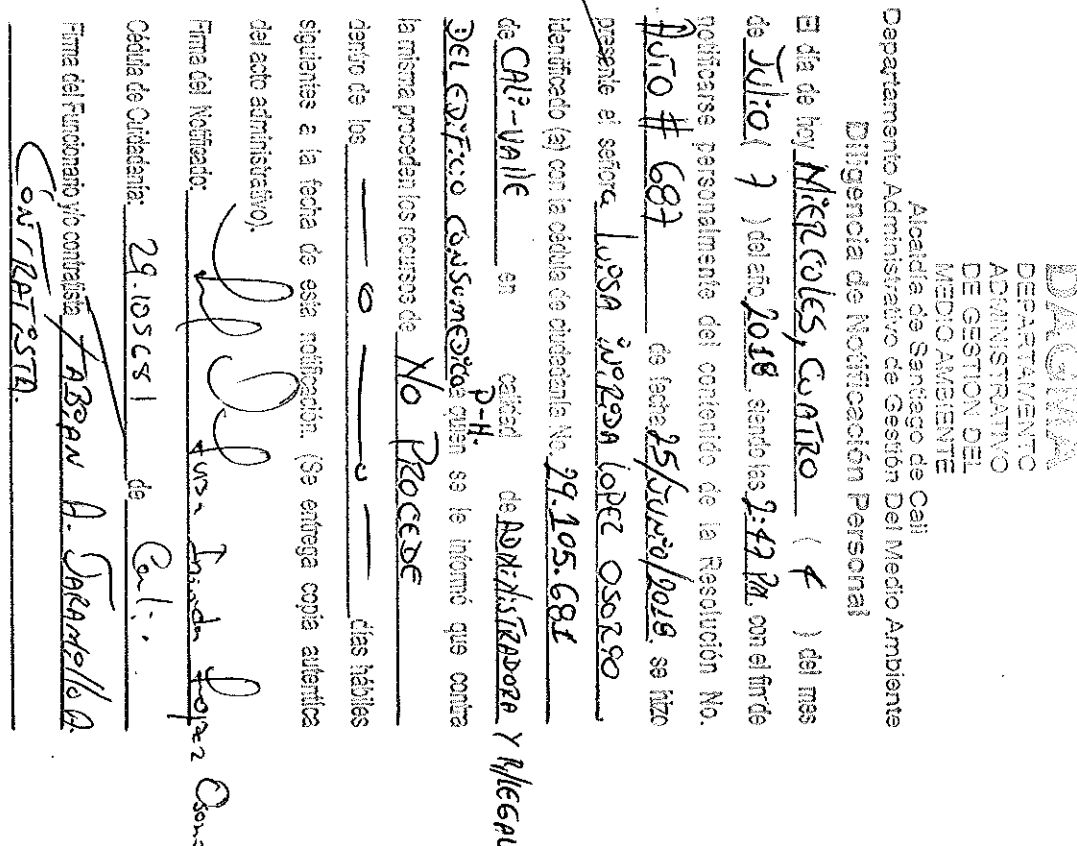 DAGMA
DEPARTAMENTO
ADMINISTRATIVO
DE GESTION DEL
MEDIO AMBIENTE
Alcaldía de Santiago de Cali
Departamento Administrativo de Gestión Del Medio Ambiente
Diligencia de Notificación Personal
El día de hoy MiERCOLES, CUATRO ( 4 ) del mes
de Julio ( 7 ) del año 2018 siendo las 2:47 Pm. con el fin de
notificarse personalmente del contenido de la Resolución No.
AUTO # 687 de fecha 25/JUNIO/2018 se hizo
presente el señora LUISA INIRIDA LOPEZ OSORIO
identificado (a) con la cédula de ciudadanía No. 29.105.681
de CALI-VALLE en calidad de ADMINISTRADORA Y R/LEGAL
DEL EDIFICO CONSUMEDICOS P-H. a quien se le informó que contra
la misma proceden los recursos de NO PROCEDE
dentro de los días hábiles
siguientes a la fecha de esta notificación. (Se entrega copia autentica
del acto administrativo).
Firma del Notificado: Luisa Inirida Lopez
Cédula de Cuidadanía: 29.105681 de Cali.
Firma del Funcionario y/o contratista FABIAN A. JARAMILLO O.
CONTRATISTA.